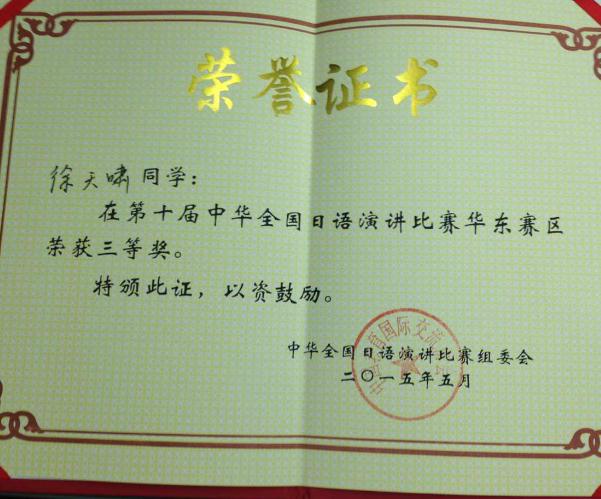 荣誉证书
徐天啸同学：
在第十届中华全国日语演讲比赛华东赛区
荣获三等奖。
特颁此证，以资鼓励。
中华全国日语演讲比赛组委会
二〇一五年五月